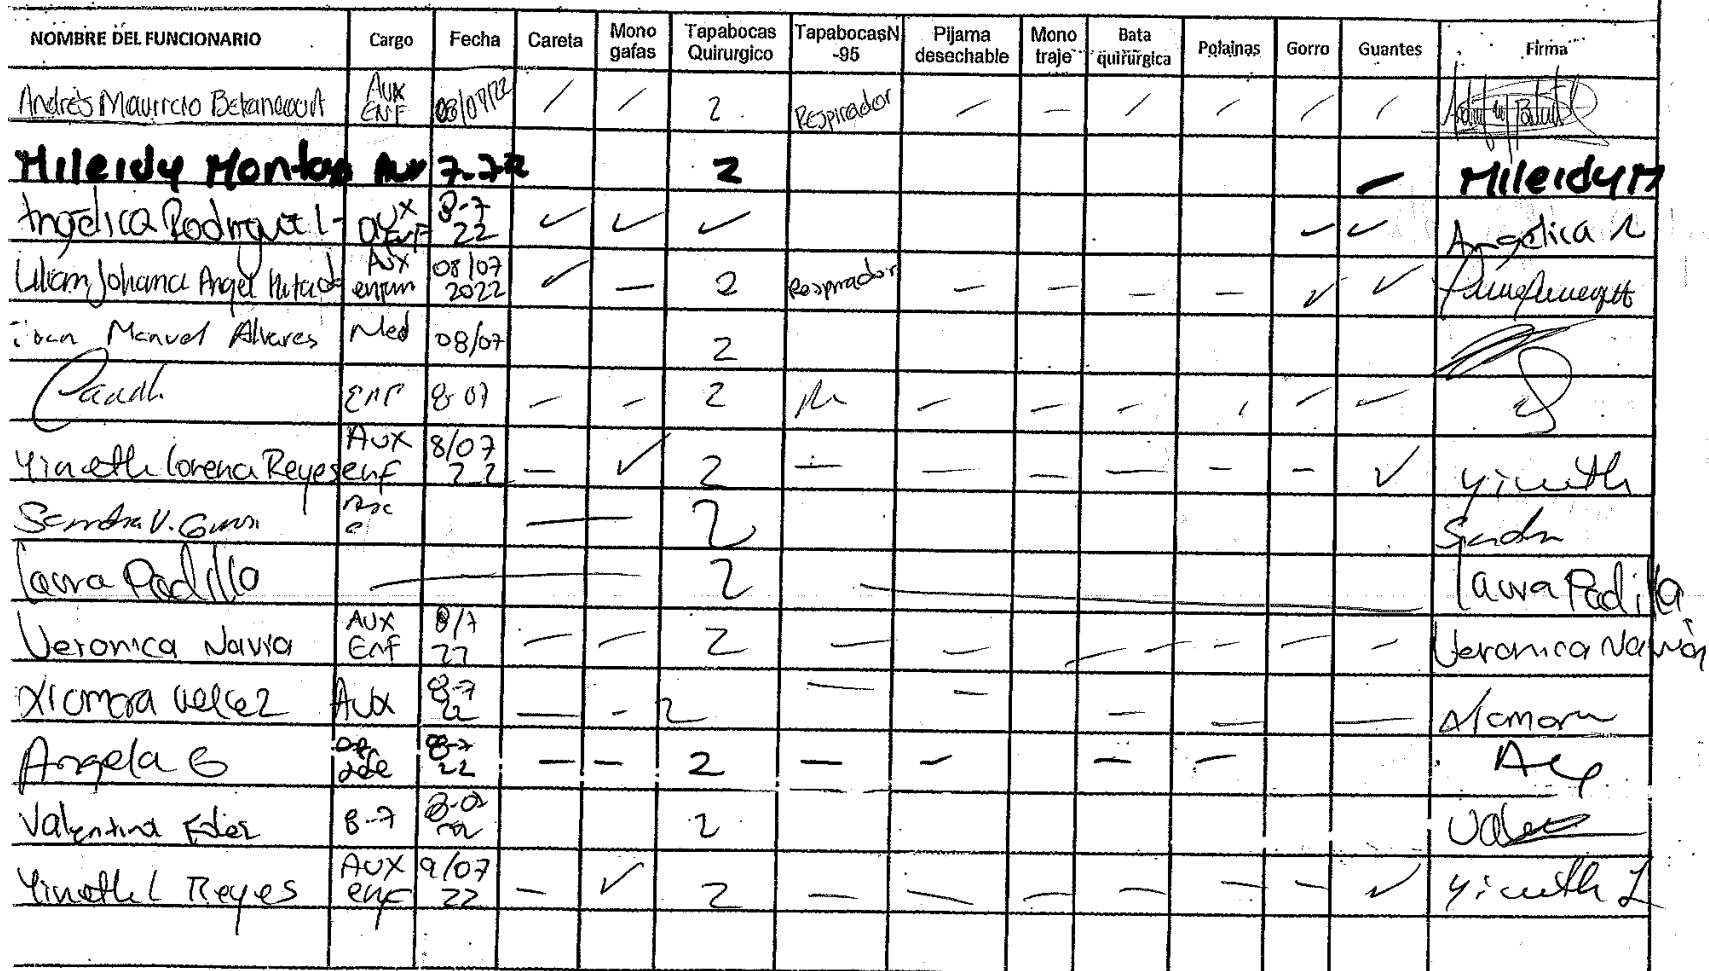 NOMBRE DEL FUNCIONARIO Cargo Fecha Careta Mono gafas Tapabocas Quirurgico TapabocasN-95 Pijama desechable Mono traje Bata quirúrgica Polainas Gorro Guantes Firma
Andrés Mauricio Betancourt Aux ENF 08/07/22 / / 2 Respirador / - / / / / /
Mileidy Aux 7-7-22 2 - Mileidy M
Angelica Rodriguez L Aux Enf 8-7 22 ✓ ✓ ✓ ✓ ✓ Angelica R
Lilian Johana Angel Hurtado Aux enfrm 08/07 2022 ✓ - 2 Respirador - - - - ✓ ✓
Manuel Alvares Med 08/07 2
ENF 8-07 - - 2 - - - / - -
Yineth Lorena Reyes Aux enf 8/07 22 - ✓ 2 - - - - - - ✓ Yineth
Sandra V. - 2 Sandra
Laura Padilla - 2 - Laura Padilla
Veronica Navia Aux Enf 8/7 22 - - 2 - - - - - - - Veronica Navia
Xiomara Velez Aux 8-7 22 - - 2 - - - - - Xiomara
Angela G 8-7 22 - - 2 - - - -
Valentina Eder 8-7 8-07 2
Yineth L Reyes Aux enf 9/07 22 - ✓ 2 - - - - - - ✓ Yineth L